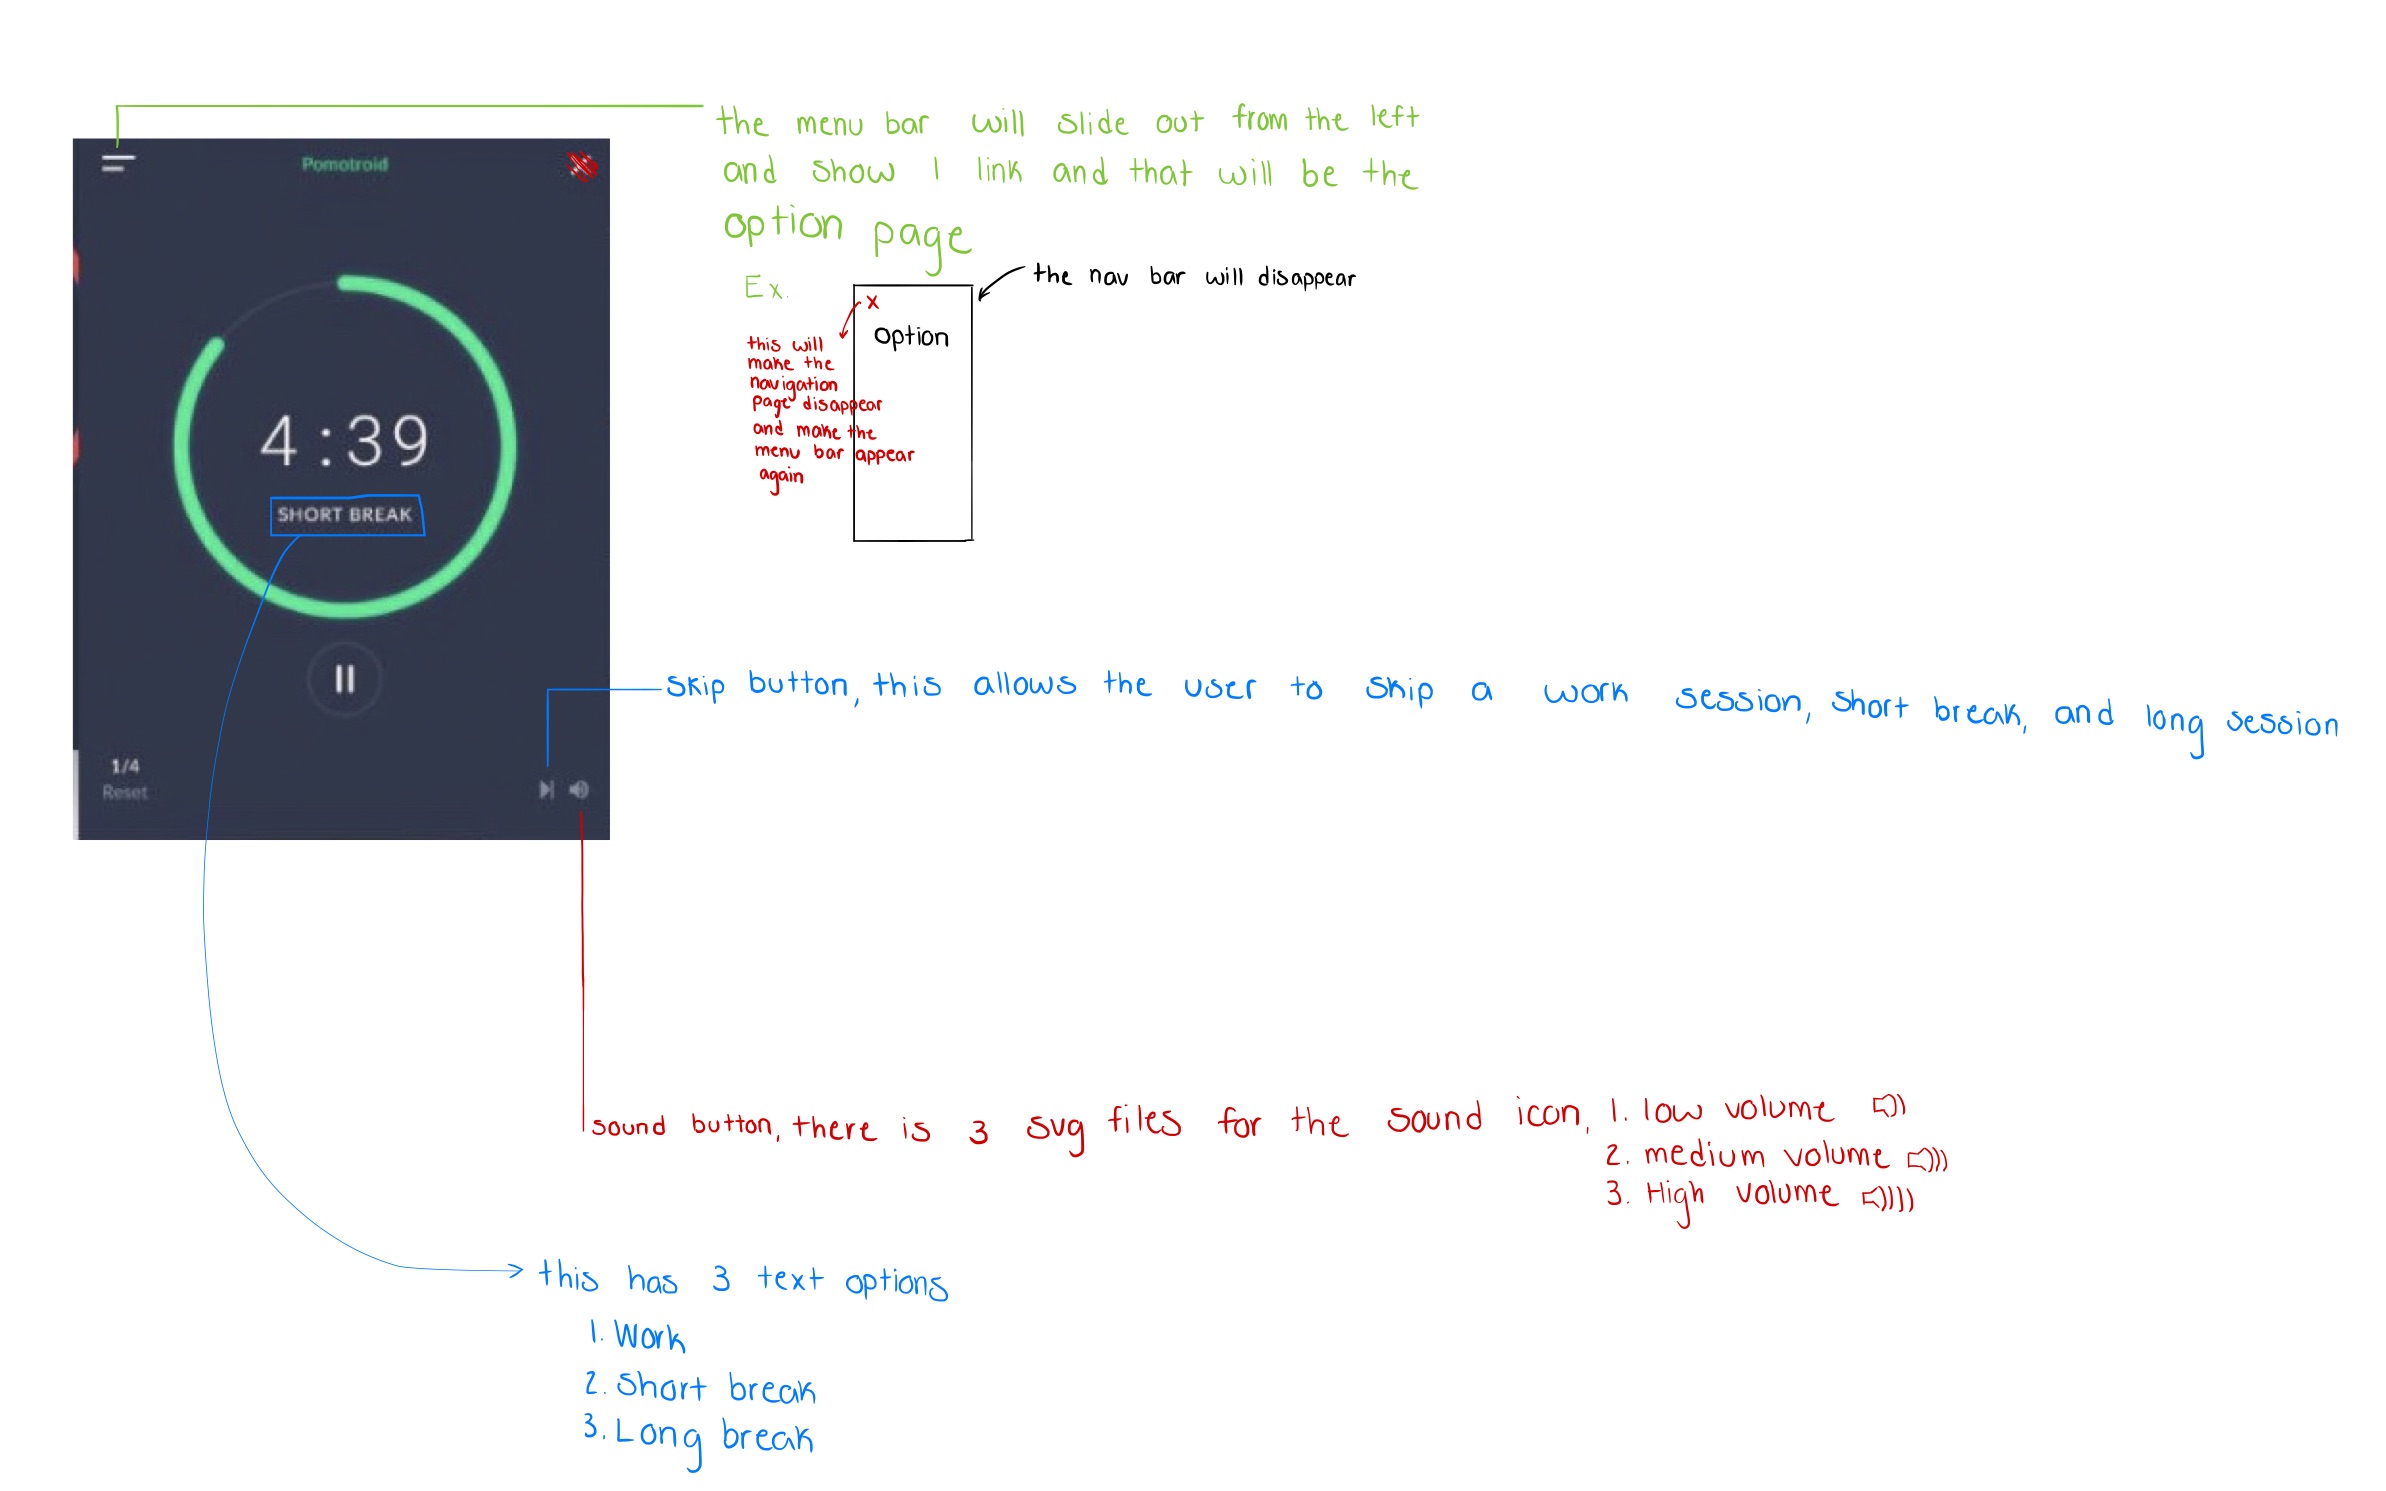 the menu bar will slide out from the left
and show 1 link and that will be the
option page
Ex.
the nav bar will disappear
x
option
this will
make the
navigation
page disappear
and make the
menu bar appear
again
Pomotroid
4:39
SHORT BREAK
1/4
Reset
skip button, this allows the user to skip a work session, short break, and long session
sound button, there is 3 svg files for the sound icon, 1. low volume
2. medium volume
3. High volume
this has 3 text options
1. Work
2. Short break
3. Long break